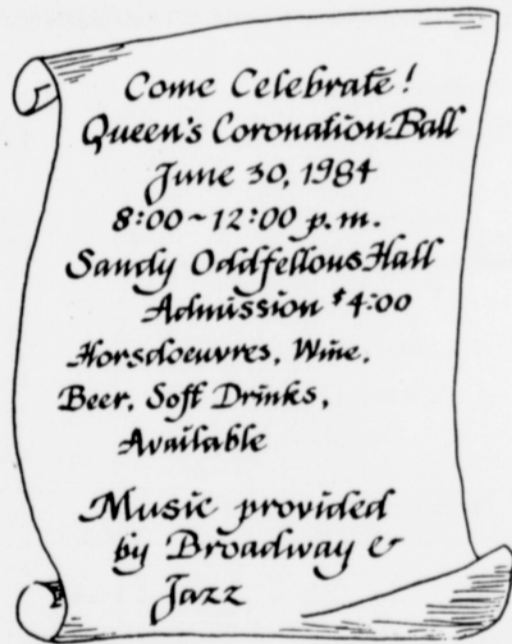 Come Celebrate!
Queen's Coronation Ball
June 30, 1984
8:00~12:00 p.m.
Sandy Oddfellows Hall
Admission $4.00
Horsdoeuvres, Wine,
Beer, Soft Drinks,
Available
Music provided
by Broadway &
Jazz